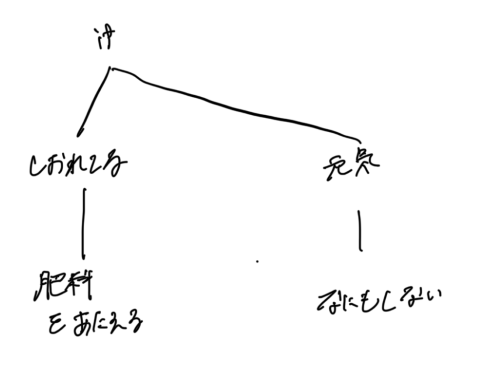 しおれてる
元気
肥料
をあたえる
なにもしない